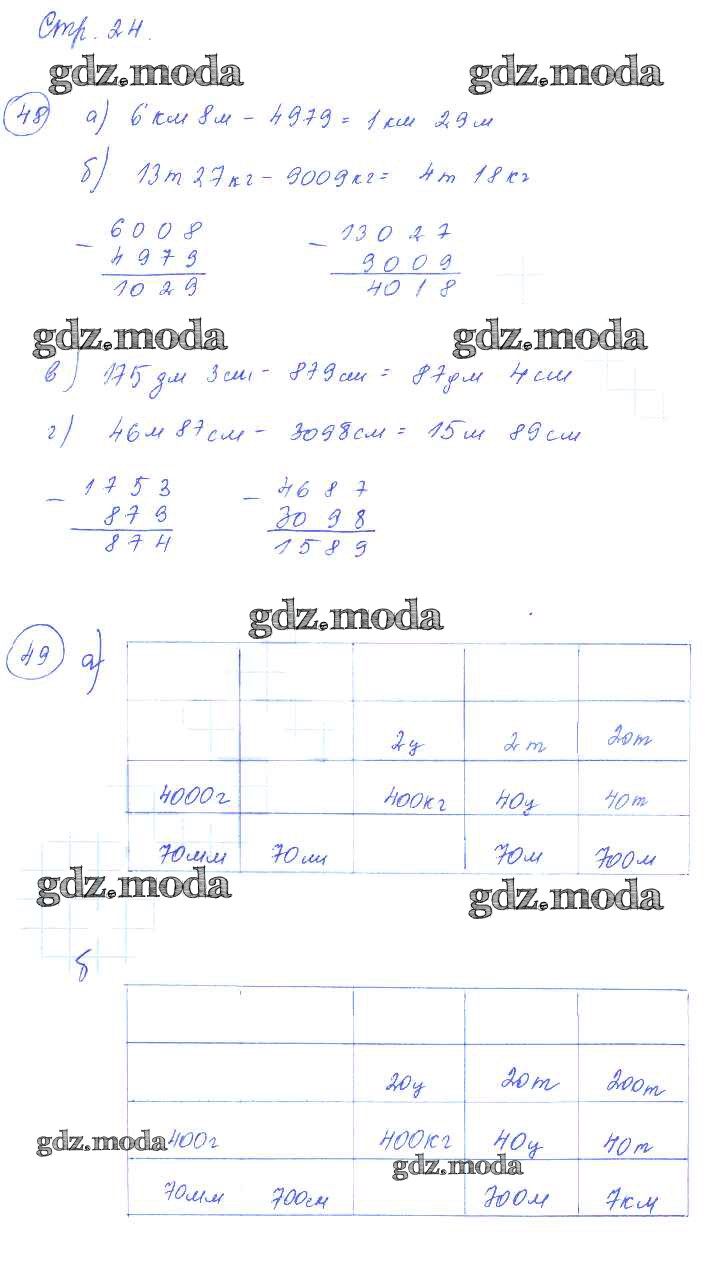 Стр. 24.
gdz.moda gdz.moda
48 а) 6 км 8м - 4979 = 1 км 29м
б) 13т 27кг - 9009кг = 4т 18кг
- 6008 - 13027
4979 9009
1029 4018
gdz.moda gdz.moda
в) 175дм 3см - 879см = 87дм 4см
г) 46м 87см - 3098см = 15м 89см
- 1753 - 4687
879 3098
874 1589
gdz.moda
49 а)
2ц 2т 20т
4000г 400кг 40ц 40т
70мм 70м 700м
gdz.moda gdz.moda
б
20ц 20т 200т
gdz.moda 400г 400кг 40ц 40т
gdz.moda
70мм 700см 700м 7км